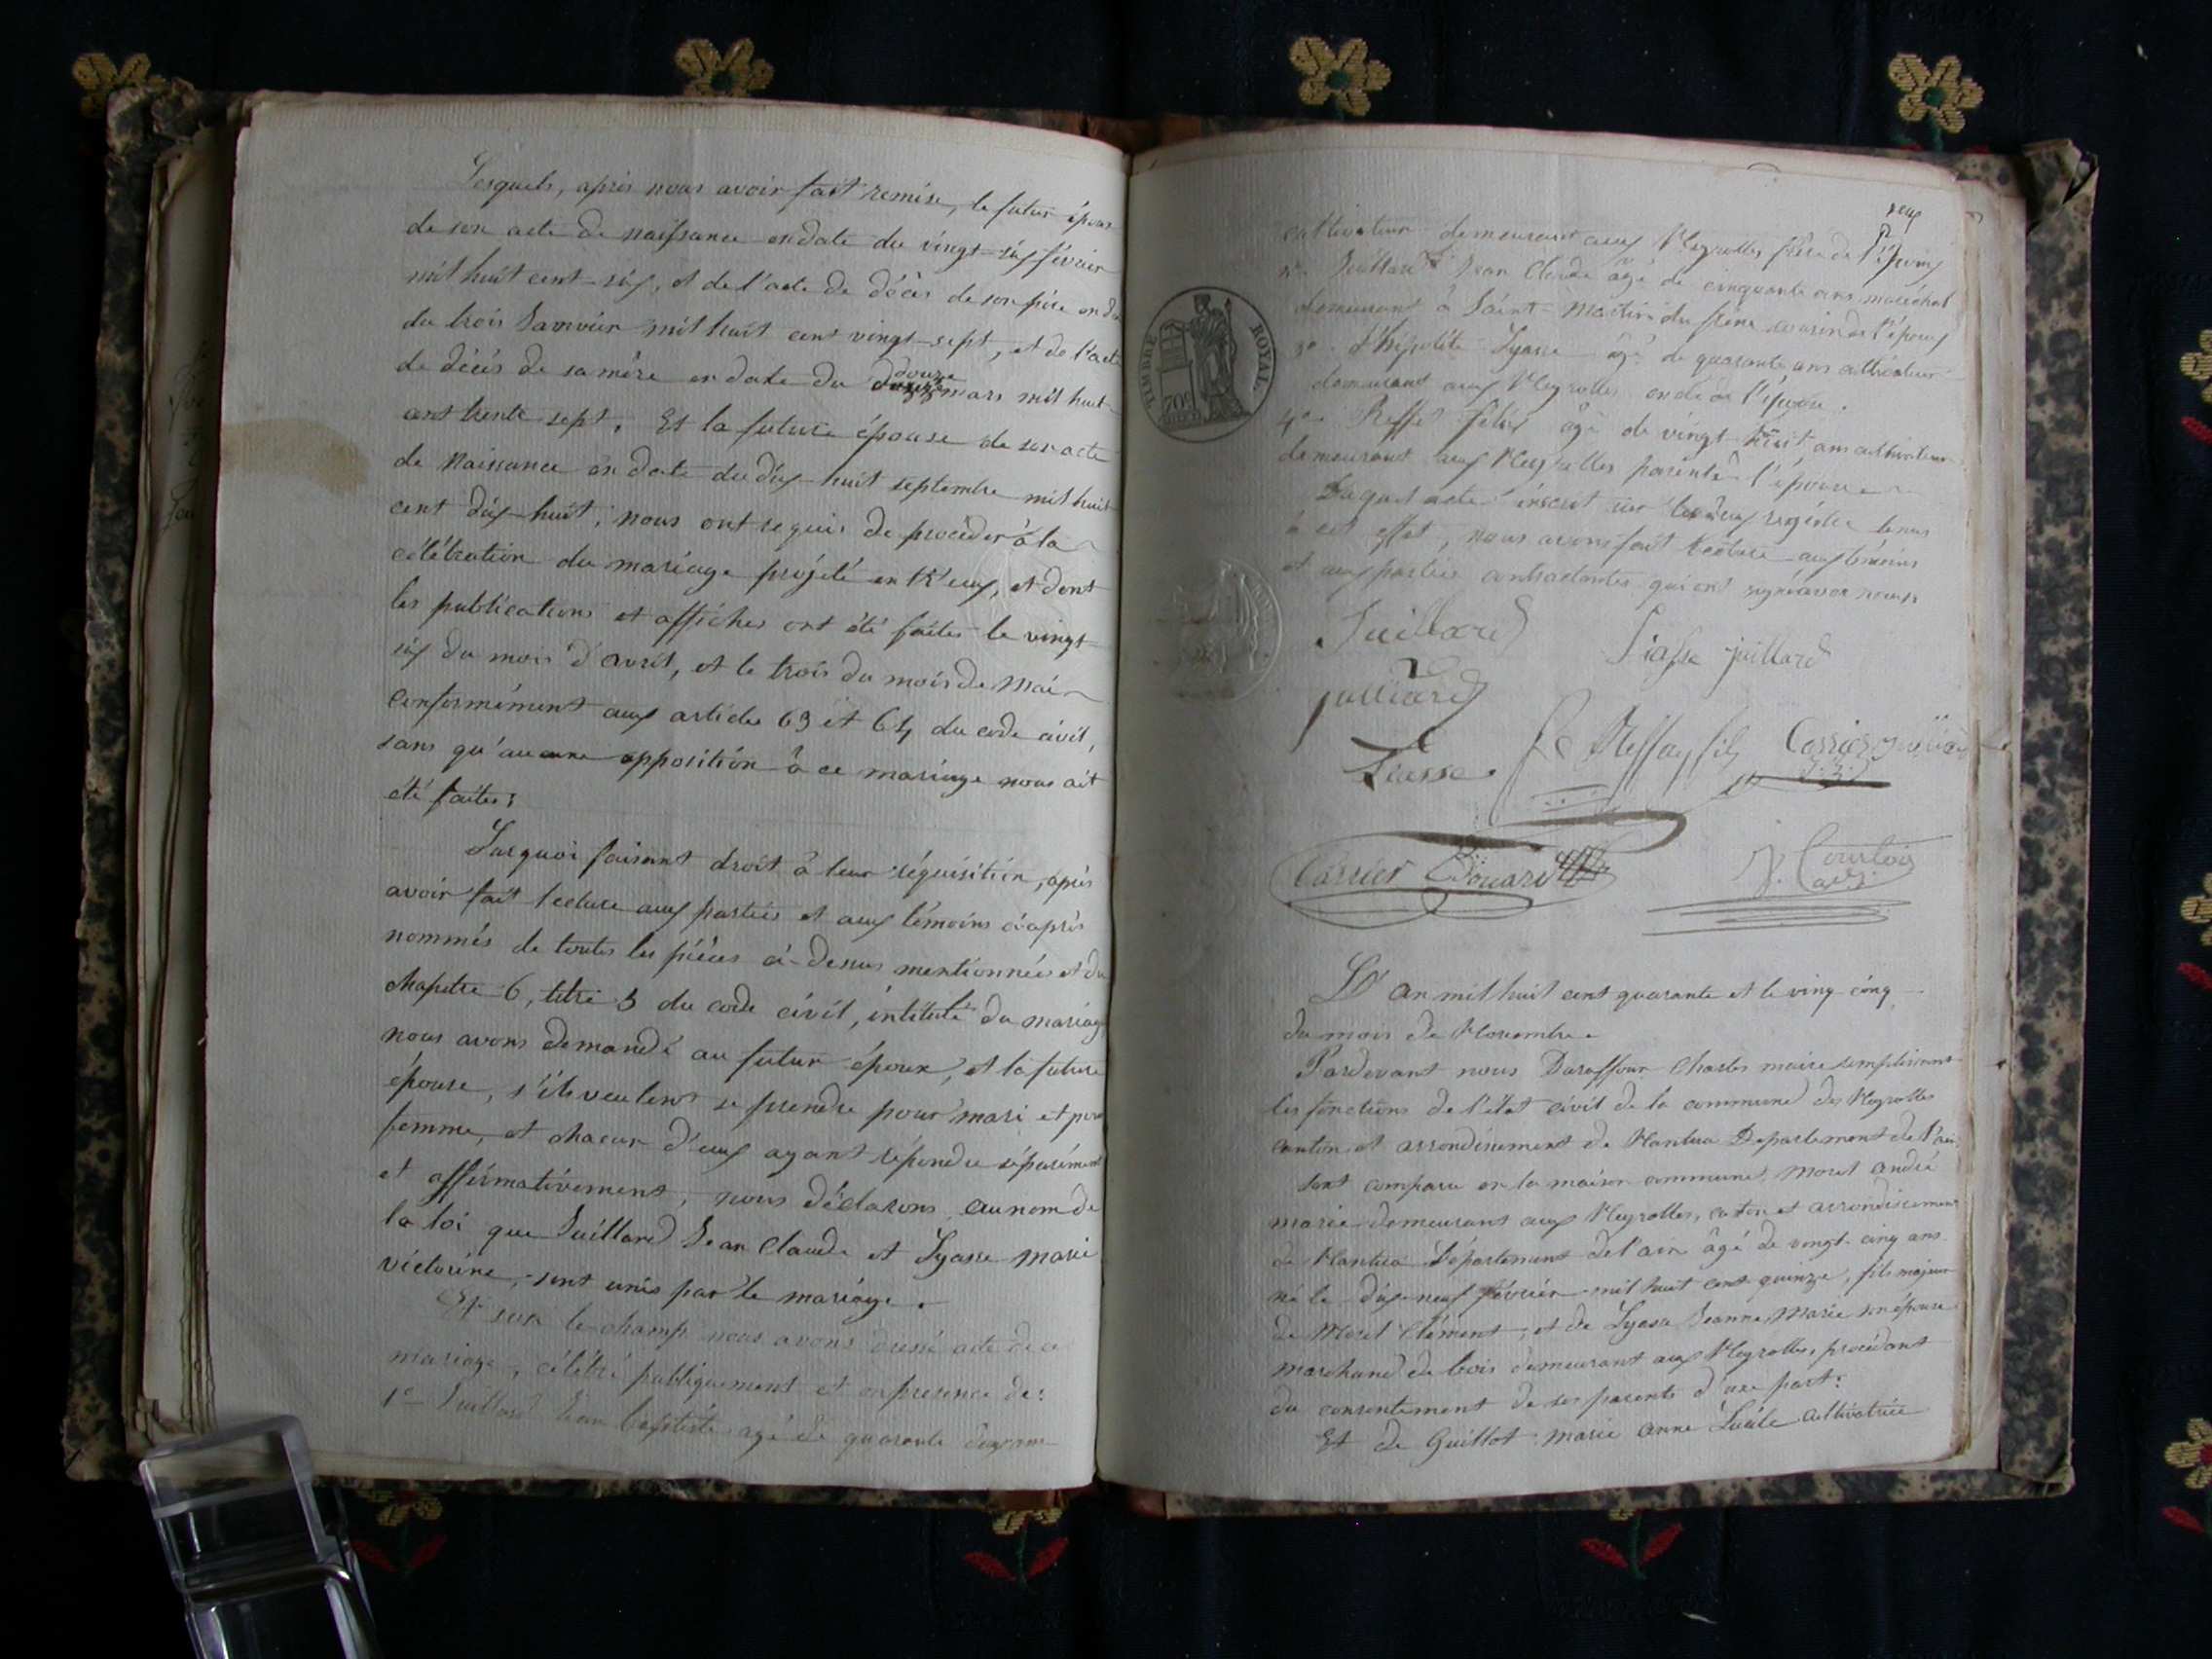 Lesquels, après nous avoir fait remise, le futur époux
de son acte de naissance en date du vingt-six février
mil huit cent-six, et de l'acte de décès de son père en da
du trois Janvier mil huit cent vingt-sept, et de l'acte
de décès de sa mère en date du douze mars mil huit
cent trente sept, Et la future épouse de son acte
de Naissance en date du dix-huit septembre mil huit
cent dix-huit, nous ont requis de procéder à la
célébration du mariage projeté entr'eux, et dont
les publications et affiches ont été faites le vingt
six du mois d'avril, et le trois du mois de Mai
conformément aux articles 63 et 64 du code civil,
sans qu'aucune opposition à ce mariage nous ait
été faites;
Surquoi faisant droit à leur réquisition, après
avoir fait lecture aux parties et aux témoins ci-après
nommés de toutes les pièces ci-dessus mentionnées et du
chapitre 6, titre 5 du code civil, intitulé du mariage
nous avons demandé au futur époux, et la future
épouse, s'ils veulent se prendre pour mari et pour
femme, et chacun d'eux ayant répondu séparément
et affirmativement, nous déclarons au nom de
la loi que Juillard Jean Claude et Lyasse Marie
victorine, sont unis par le mariage.
Et sur le champ nous avons dressé acte de ce
mariage, célébré publiquement et en presence de:
1º Juillard Jean Baptiste agé de quarante
cultivateur demeurant aux Neyrolles frère de l'époux
2º Juillard Jean Claude âgé de cinquante ans maréchal
demeurant à Saint-Martin du frêne cousin de l'époux
3º Lyasse âgé de quarante ans cultivateur
demeurant aux Neyrolles oncle de l'épouse.
4º Reffet félix âgé de vingt huit ans cultivateur
demeurant aux Neyrolles parent à l'épouse
Duquel acte inscrit sur les deux registres tenus
à cet effet, nous avons fait lecture aux témoins
et aux parties contractantes qui ont signé avec nous
Juillard
Liasse juillard
juillard
Liasse
fils Carrier
TIMBRE ROYAL
70c
Carrier Edouard
J. Courtois
L'an mil huit cent quarante et le ving cinq
du mois de Novembre
Pardevant nous Daraffour Charles maire remplissant
les fonctions de l'état civil de la commune des Neyrolles
canton et arrondissement de Nantua Departement de l'ain
sont comparu en la maison commune, Moret andré
marie demeurant aux Neyrolles, caton et arrondissement
de Nantua Département de l'ain âgé de vingt-cinq ans
né le dix-neuf février mil huit cent quinze, fils majeur
de Moret Clément, et de Lyasse Jeanne Marie son épouse
marchand de bois demeurant aux Neyrolles, procédant
du consentement de ses parents d'une part:
Et de Guillot Marie Anne Lucile cultivatrice